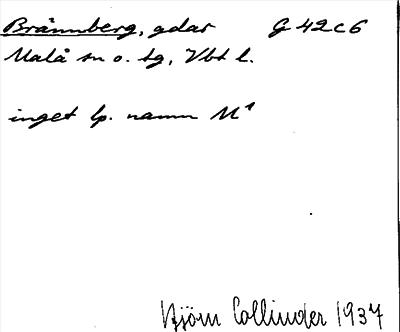 Brännberg, gdar G 42c6
Malå sn o. tg, Vbt l.
inget lp. namn M¹
Björn Collinder 1937